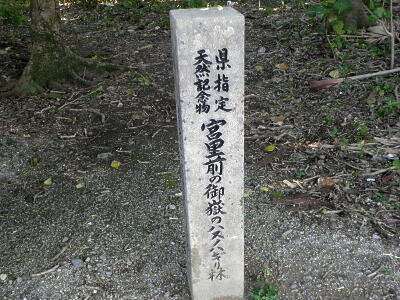 県指定
天然記念物
宮里前の御嶽のハスノハギリ林